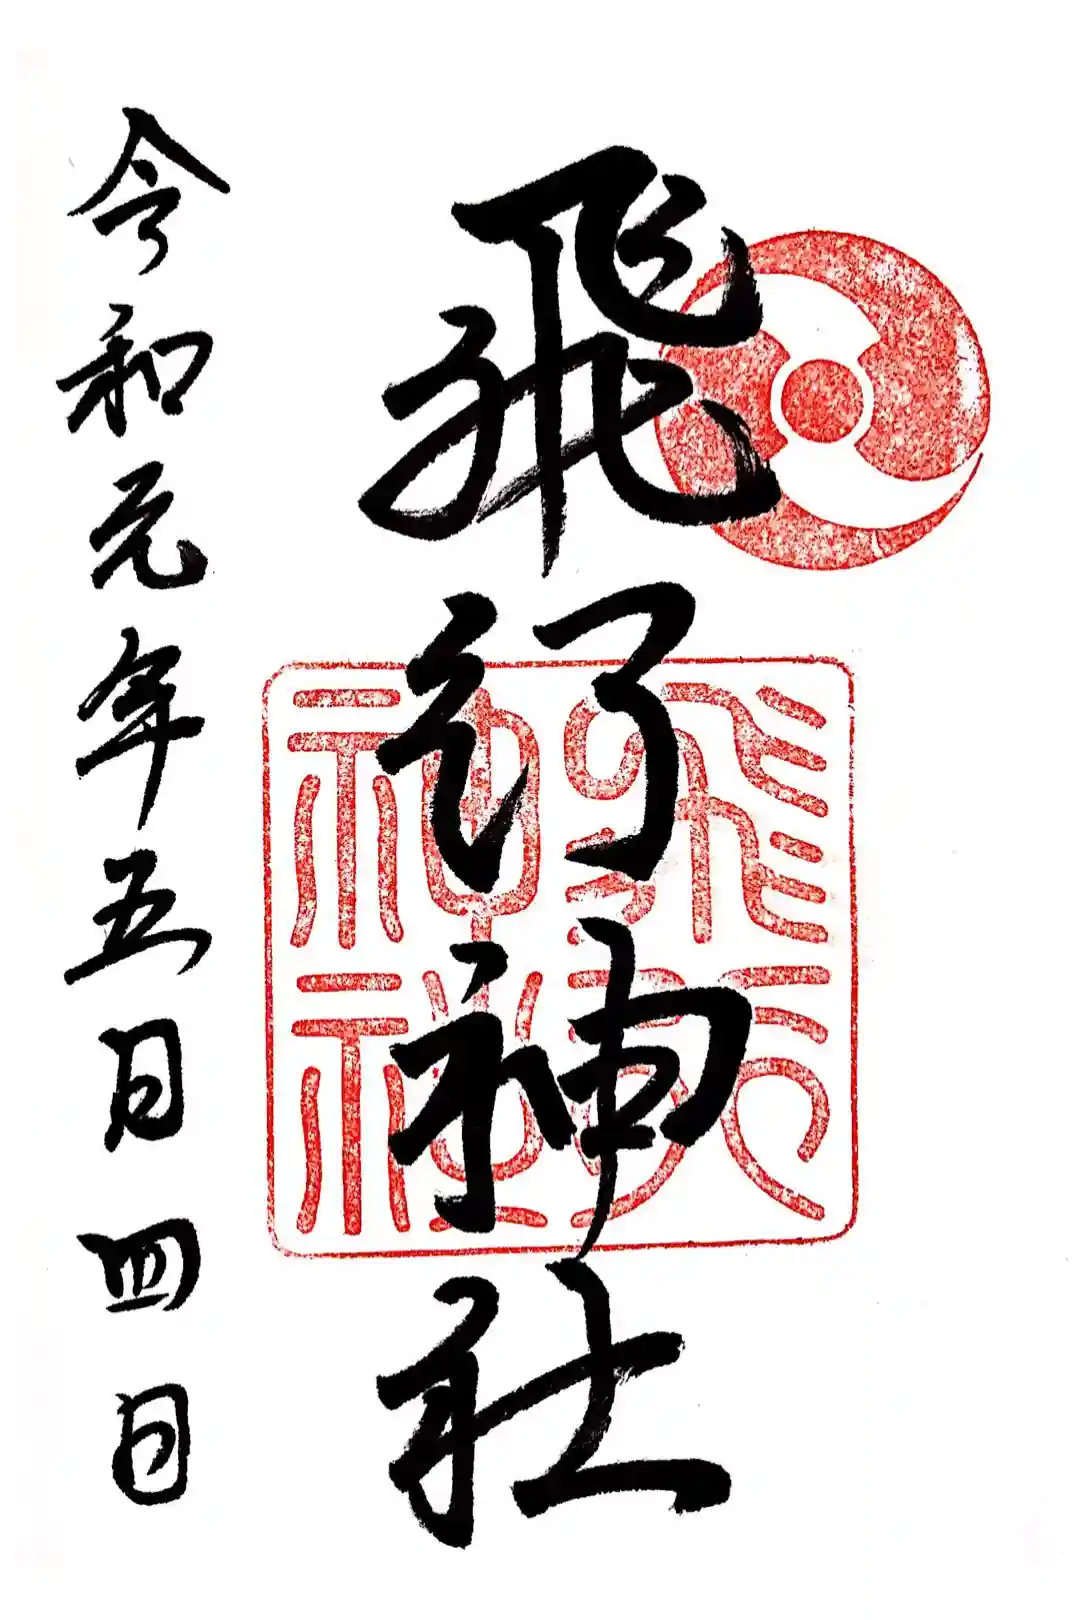 飛行神社
飛行
神社
令和元年五月四日